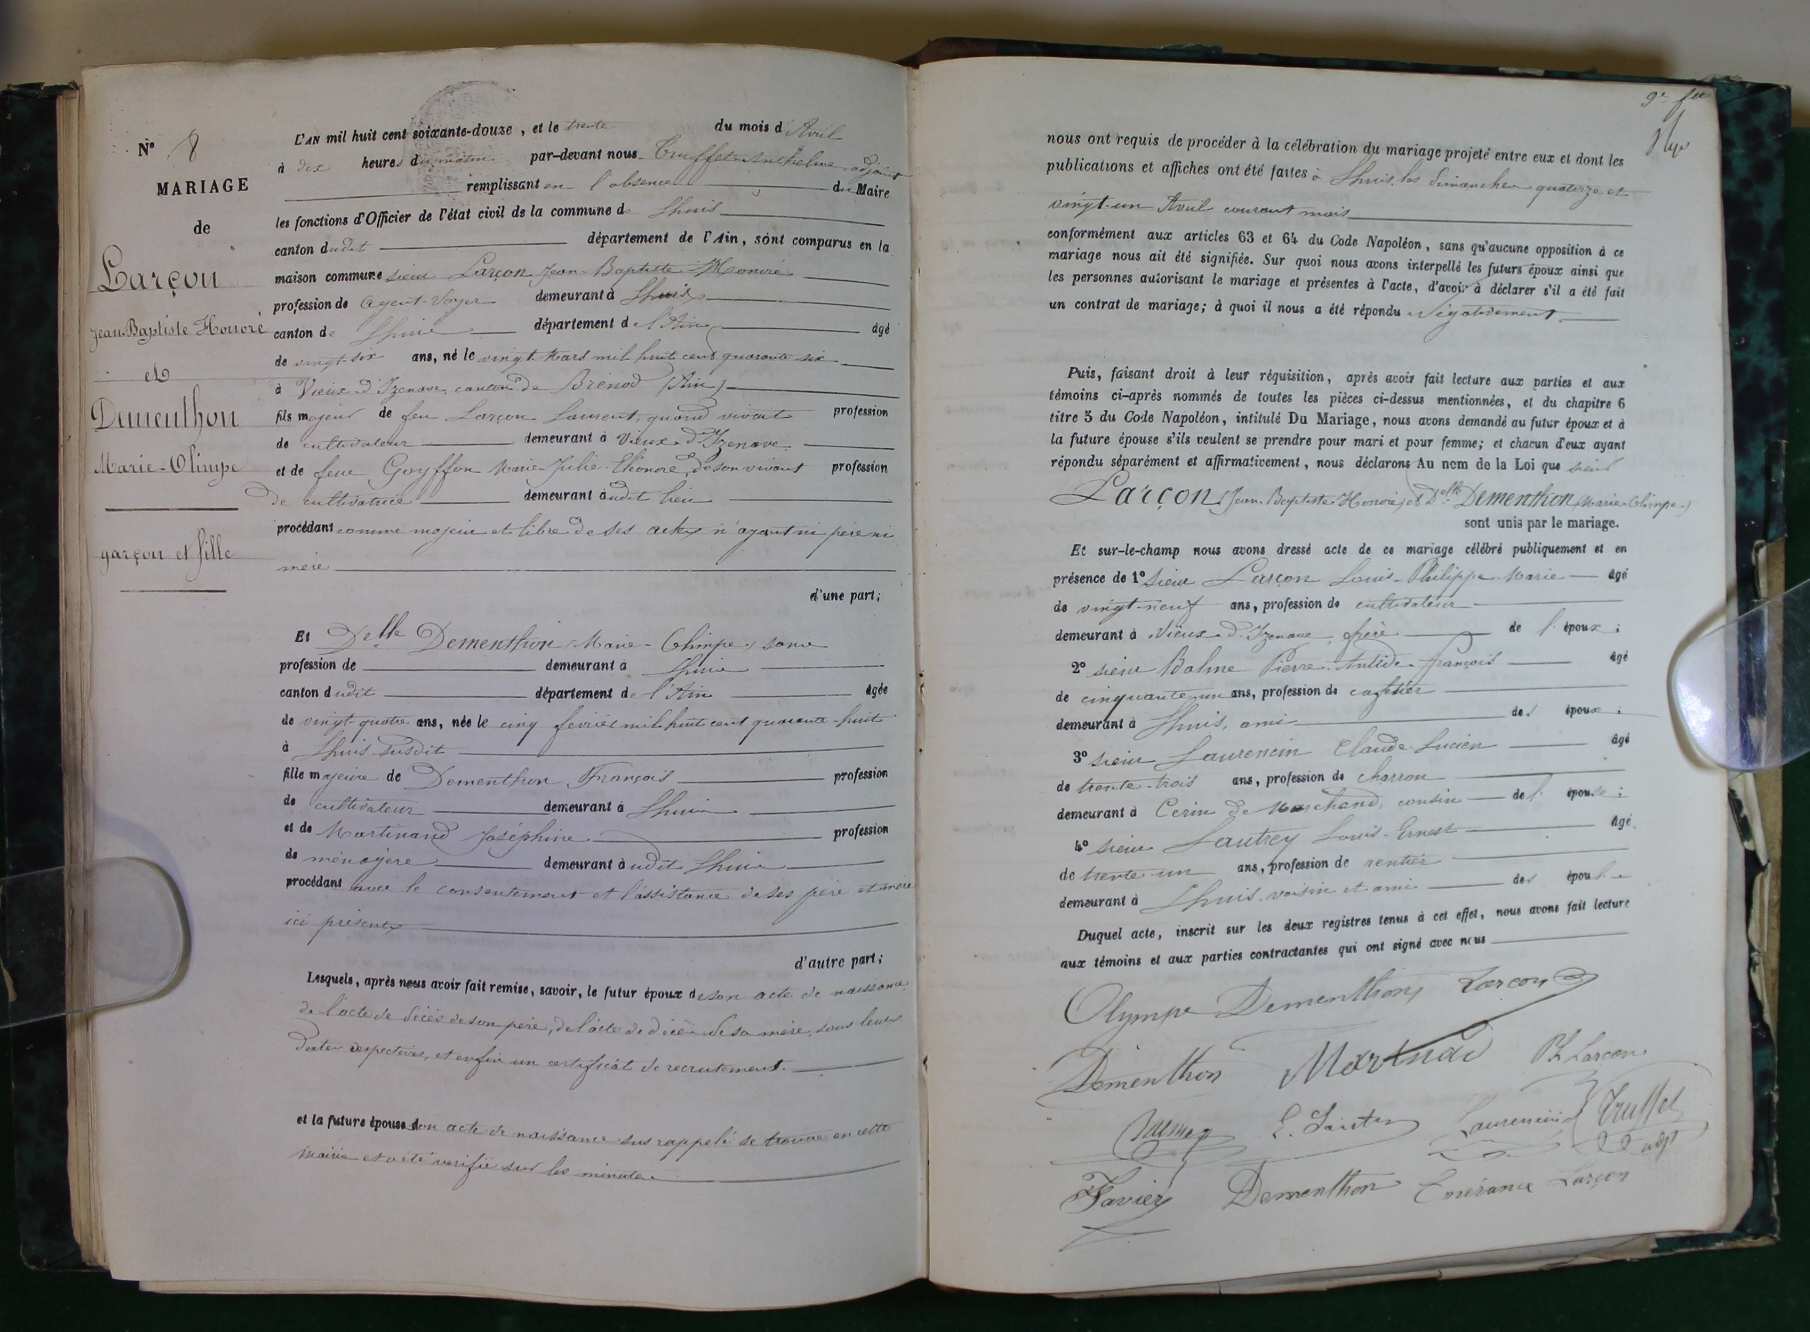 N° 8
MARIAGE
de
Larçon
Jean-Baptiste Honoré
et
Dementhon
Marie-Olimpe
garçon et fille
L'AN mil huit cent soixante-douze, et le trente du mois d'Avril
à dix heures du matin par-devant nous Truffet Anthelme adjoint
remplissant en l'absence du Maire
les fonctions d'Officier de l'état civil de la commune de Lhuis
canton dudit département de l'Ain, sont comparus en la
maison commune sieur Larçon Jean-Baptiste Honoré
profession de Agent-Voyer demeurant à Lhuis
canton de Lhuis département de l'Ain âgé
de vingt-six ans, né le vingt Mars mil huit cent quarante six
à Vieux-d'Izenave, canton de Brénod (Ain)
fils majeur de feu Larçon Laurent, quand vivait profession
de cultivateur demeurant à Vieux-d'Izenave
et de feue Goyffon Marie-Julie-Eléonore, de son vivant profession
de cultivatrice demeurant audit lieu
procédant comme majeur et libre de ses actes n'ayant ni père ni
mère
d'une part;
Et Delle Dementhon (Marie-Olimpe) sans
profession de demeurant à Lhuis
canton dudit département de l'Ain âgée
de vingt-quatre ans, née le cinq février mil huit cent quarante-huit
à Lhuis susdit
fille majeure de Dementhon François profession
de cultivateur demeurant à Lhuis
et de Martinand Joséphine profession
de ménagère demeurant audit Lhuis
procédant avec le consentement et l'assistance de ses père et mère
ici présents
d'autre part;
Lesquels, après nous avoir fait remise, savoir, le futur époux de son acte de naissance
de l'acte de décès de son père, de l'acte de décès de sa mère, sous leurs
dates respectives, et enfin un certificat de recrutement.
et la future épouse son acte de naissance sus rappelé se trouve en cette
mairie et a été vérifié sur les minutes
9e ftt
nous ont requis de procéder à la célébration du mariage projeté entre eux et dont les
publications et affiches ont été faites à Lhuis, les dimanches quatorze et
vingt-un Avril courant mois
conformément aux articles 63 et 64 du Code Napoléon, sans qu'aucune opposition à ce
mariage nous ait été signifiée. Sur quoi nous avons interpellé les futurs époux ainsi que
les personnes autorisant le mariage et présentes à l'acte, d'avoir à déclarer s'il a été fait
un contrat de mariage; à quoi il nous a été répondu Négativement
Puis, faisant droit à leur réquisition, après avoir fait lecture aux parties et aux
témoins ci-après nommés de toutes les pièces ci-dessus mentionnées, et du chapitre 6
titre 5 du Code Napoléon, intitulé Du Mariage, nous avons demandé au futur époux et à
la future épouse s'ils veulent se prendre pour mari et pour femme; et chacun d'eux ayant
répondu séparément et affirmativement, nous déclarons Au nom de la Loi que sieur
Larçon (Jean-Baptiste-Honoré) et Delle Dementhon (Marie-Olimpe)
sont unis par le mariage.
Et sur-le-champ nous avons dressé acte de ce mariage célébré publiquement et en
présence de 1° sieur Larçon Louis-Philippe-Marie âgé
de vingt-neuf ans, profession de cultivateur
demeurant à Vieux-d'Izenave, frère de l'époux;
2° sieur Balme Pierre-Antide-François âgé
de cinquante-un ans, profession de cafetier
demeurant à Lhuis, ami de l'époux;
3° sieur Laurencin Claude-Lucien âgé
de trente-trois ans, profession de charron
demeurant à Cerin de Marchand, cousin de l'épouse;
4° sieur Lautrey Louis-Ernest âgé
de trente-un ans, profession de rentier
demeurant à Lhuis, voisin et ami de l'épouse
Duquel acte, inscrit sur les deux registres tenus à cet effet, nous avons fait lecture
aux témoins et aux parties contractantes qui ont signé avec nous
Olympe Dementhon Larçon
Dementhon Martinand Ph Larçon
Laurencin Truffet
adjt
Favier Dementhon Larçon